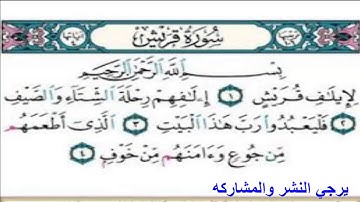 سُورَةُ قُرَيْشٍ
بِسْمِ اللَّهِ الرَّحْمَٰنِ الرَّحِيمِ
لِإِيلَٰفِ قُرَيْشٍ ١ إِۦلَٰفِهِمْ رِحْلَةَ الشِّتَآءِ وَالصَّيْفِ
٢ فَلْيَعْبُدُوا۟ رَبَّ هَٰذَا الْبَيْتِ ٣ الَّذِىٓ أَطْعَمَهُم
مِّن جُوعٍ وَءَامَنَهُم مِّنْ خَوْفٍۭ ٤
يرجي النشر والمشاركه